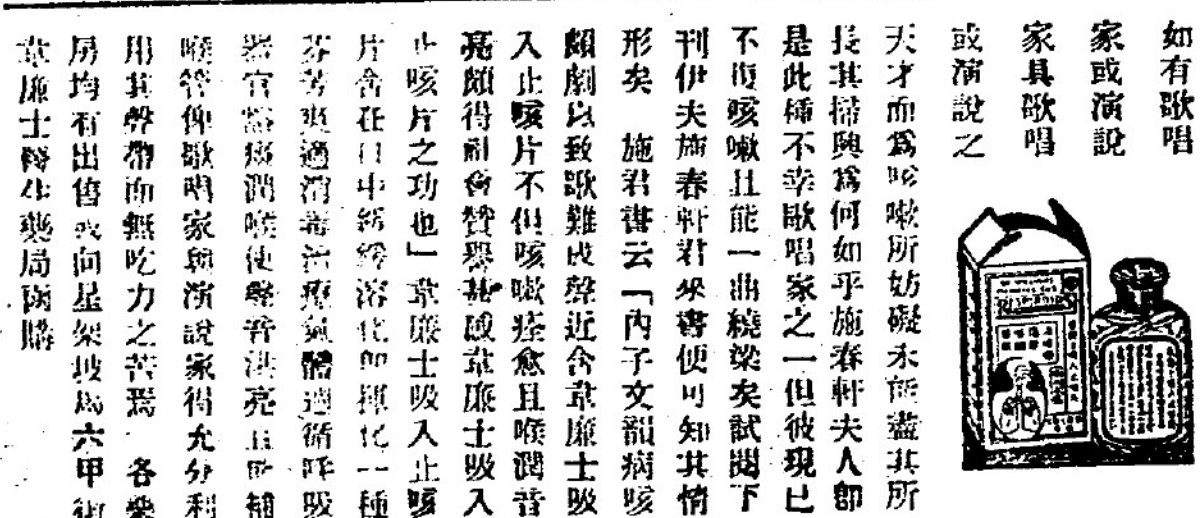 如有歌唱
家或演說
家具歌唱
或演說之
天才而爲咳嗽所妨礙未能盡其所
長其掃興爲何如乎施春軒夫人卽
是此種不幸歌唱家之一但彼現已
不復咳嗽且能一曲繞梁矣試閱下
刊伊夫施春軒君來書便可知其情
形矣　施君書云「內子文韻病咳
頗劇以致歌難成聲近含韋廉士吸
入止咳片不但咳嗽痊愈且喉潤音
亮頗得聽衆贊譽甚感韋廉士吸入
止咳片之功也」韋廉士吸入止咳
片含在口中緩緩溶化卽揮化一種
芬芳爽適消毒治療氣體週循呼吸
器官 潤喉使聲音洪亮且能補
喉管俾歌唱家與演說家得充分利
用其聲帶而無吃力之苦焉　各藥
房均有出售或向星架坡馬六甲街
韋廉士醫生藥局函購